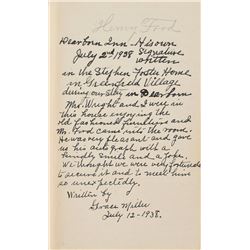 Henry Ford
Dearborn Inn - His own
July 2nd 1938 Signature
written
in the Stephen Foster Home
in Greenfield Village
during our stay in Dearborn
Mr. Wright and I were in
this house enjoying the
old fashioned furniture and
Mr. Ford came into the room.
He was very pleasant and gave
us his autograph with a
kindly smile and a joke.
We thought we were very fortunate
to secure it and to meet him
so unexpectedly.
Written by
Grace Miller
July 12-1938.